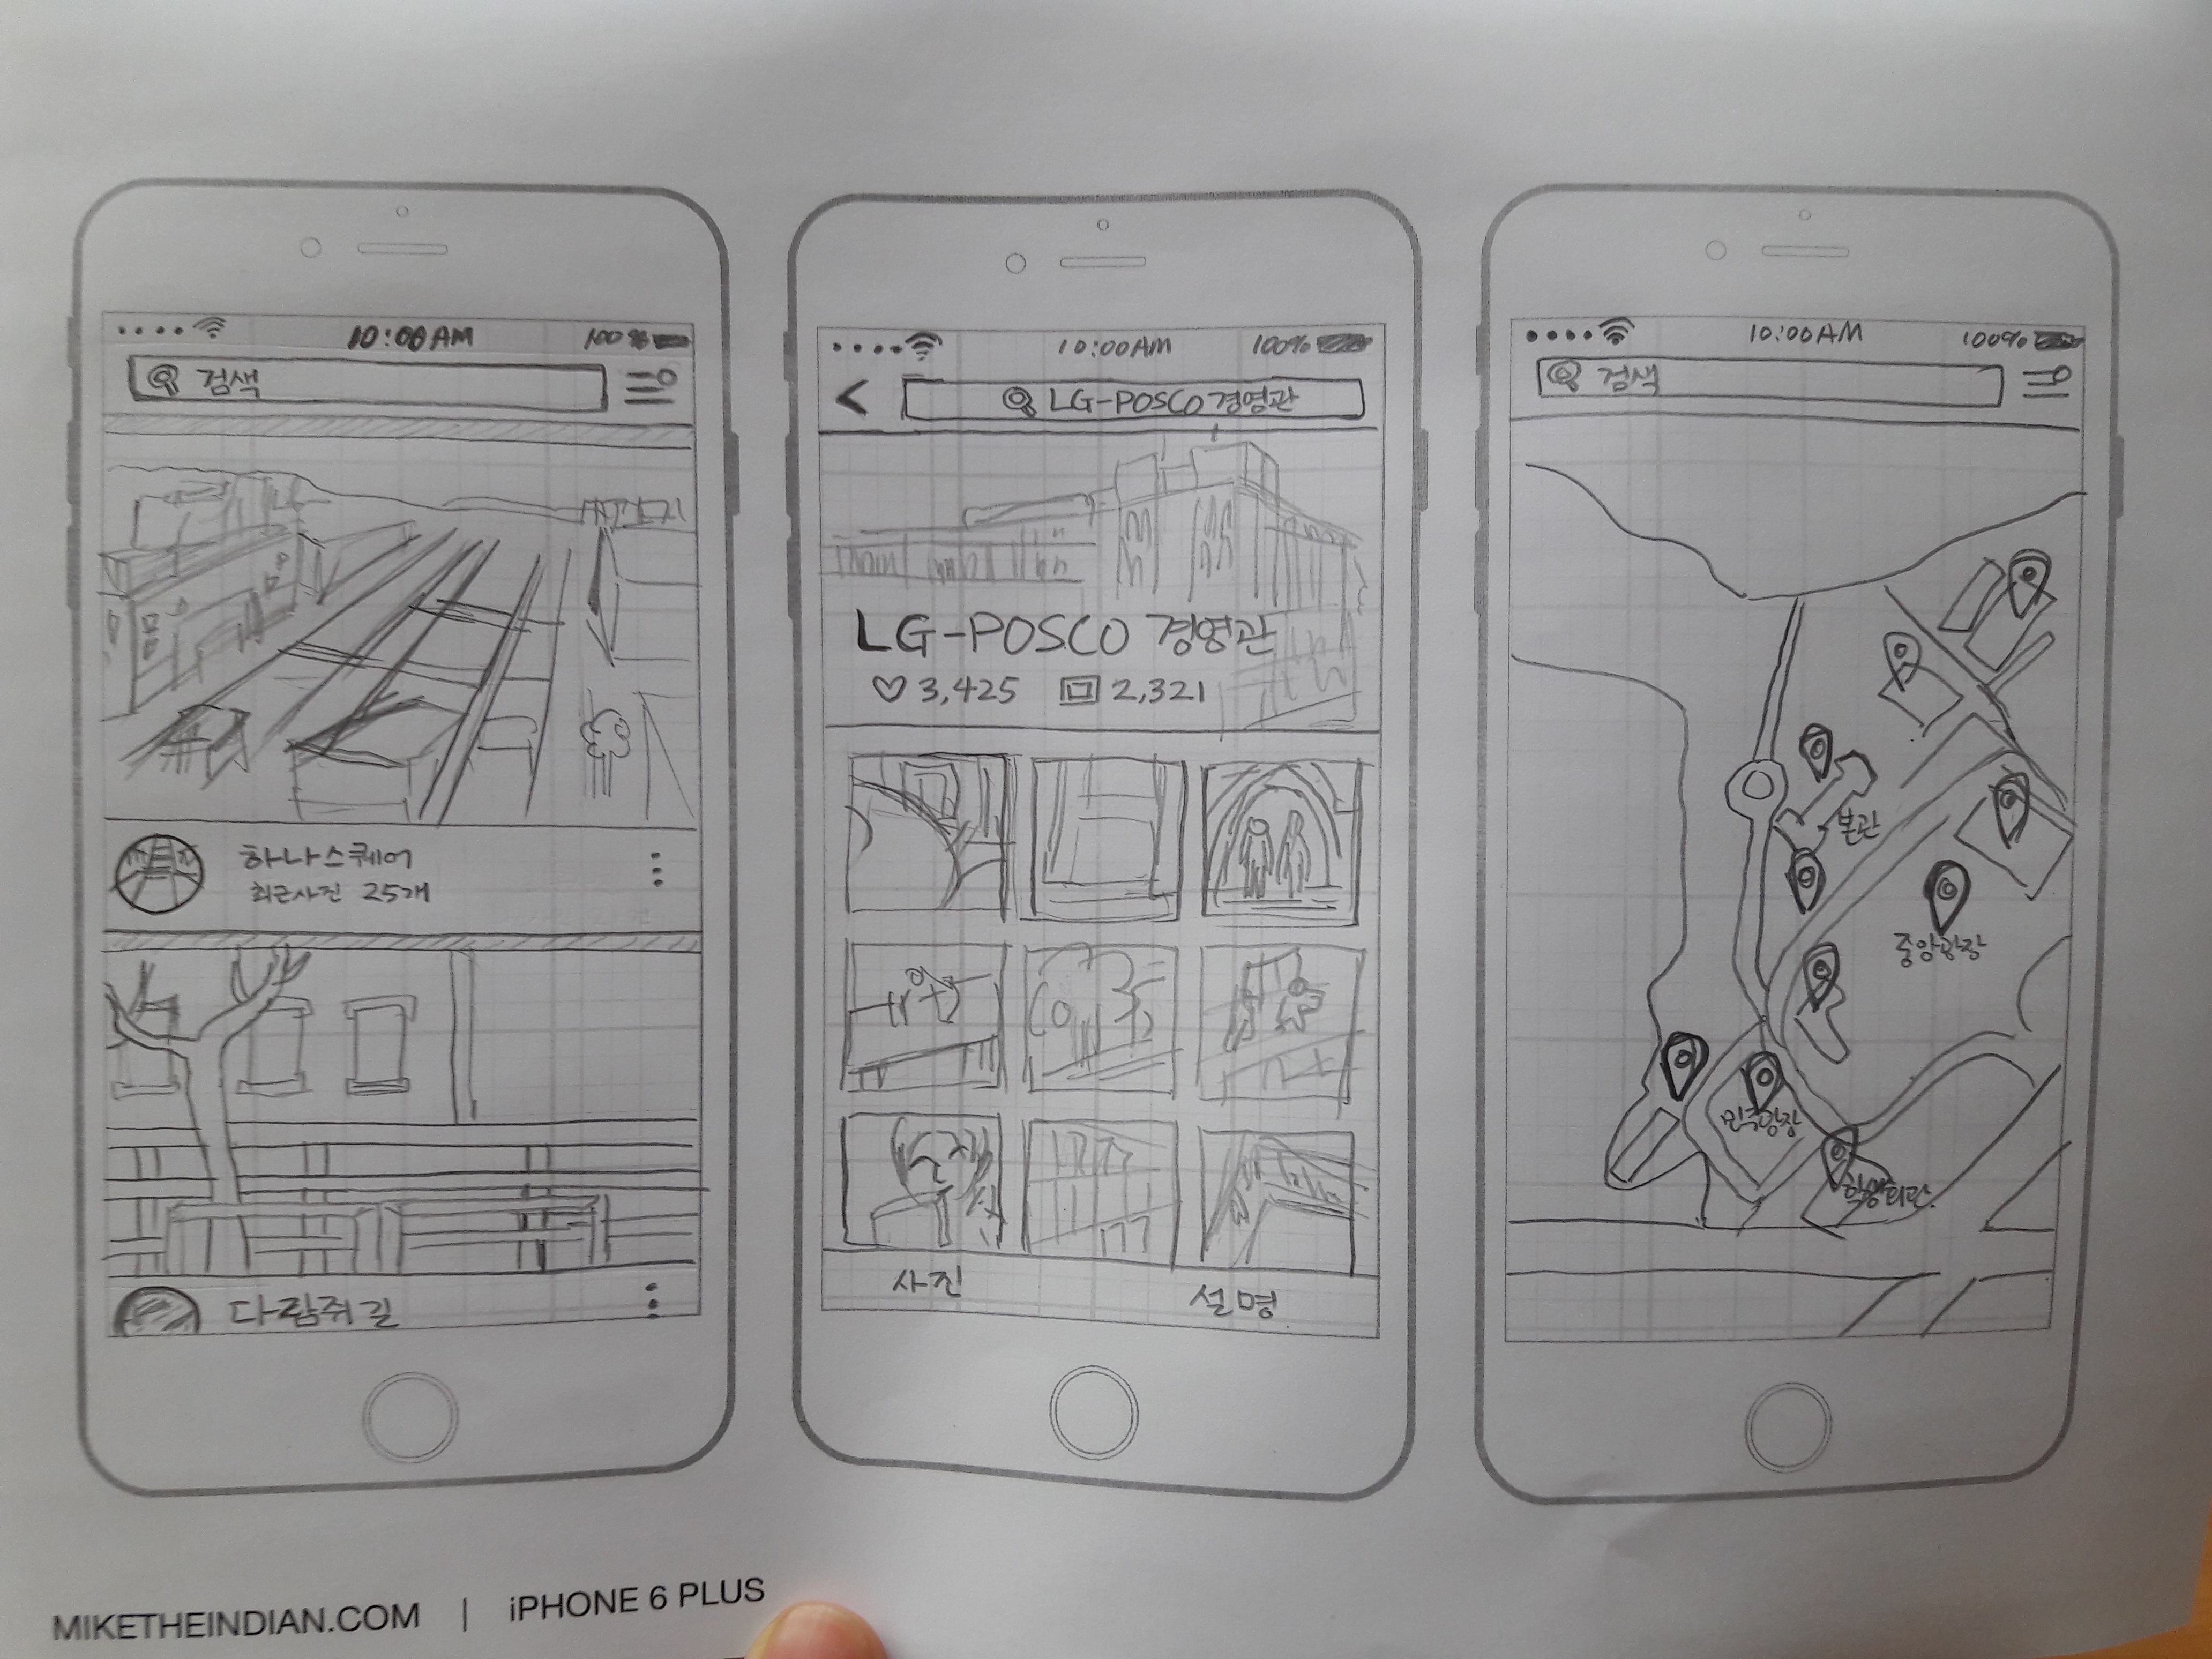 10:00 AM 100%
검색
하나스퀘어
최근사진 25개
다람쥐길
10:00AM 100%
LG-POSCO 경영관
LG-POSCO 경영관
3,425 2,321
사진 설명
10:00AM 100%
검색
본관
중앙광장
민주광장
학생회관
MIKETHEINDIAN.COM | iPHONE 6 PLUS